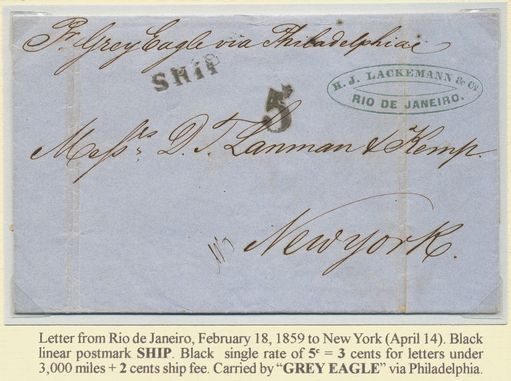 Pr Grey Eagle via Philadelphia
SHIP
5c
H. J. LACKEMANN & Co
RIO DE JANEIRO.
Messrs. D. T. Lanman & Kemp.
New york.
Letter from Rio de Janeiro, February 18, 1859 to New York (April 14). Black
linear postmark SHIP. Black single rate of 5c = 3 cents for letters under
3,000 miles + 2 cents ship fee. Carried by “GREY EAGLE” via Philadelphia.